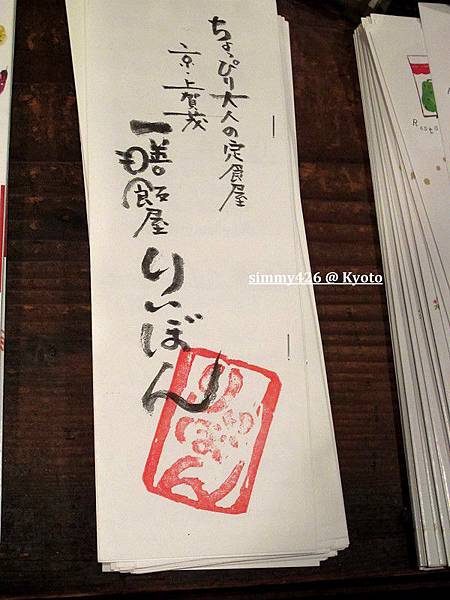 ちょっぴり大人の定食屋
京・上賀茂
一膳飯屋
りいぼん
simmy426 @ Kyoto